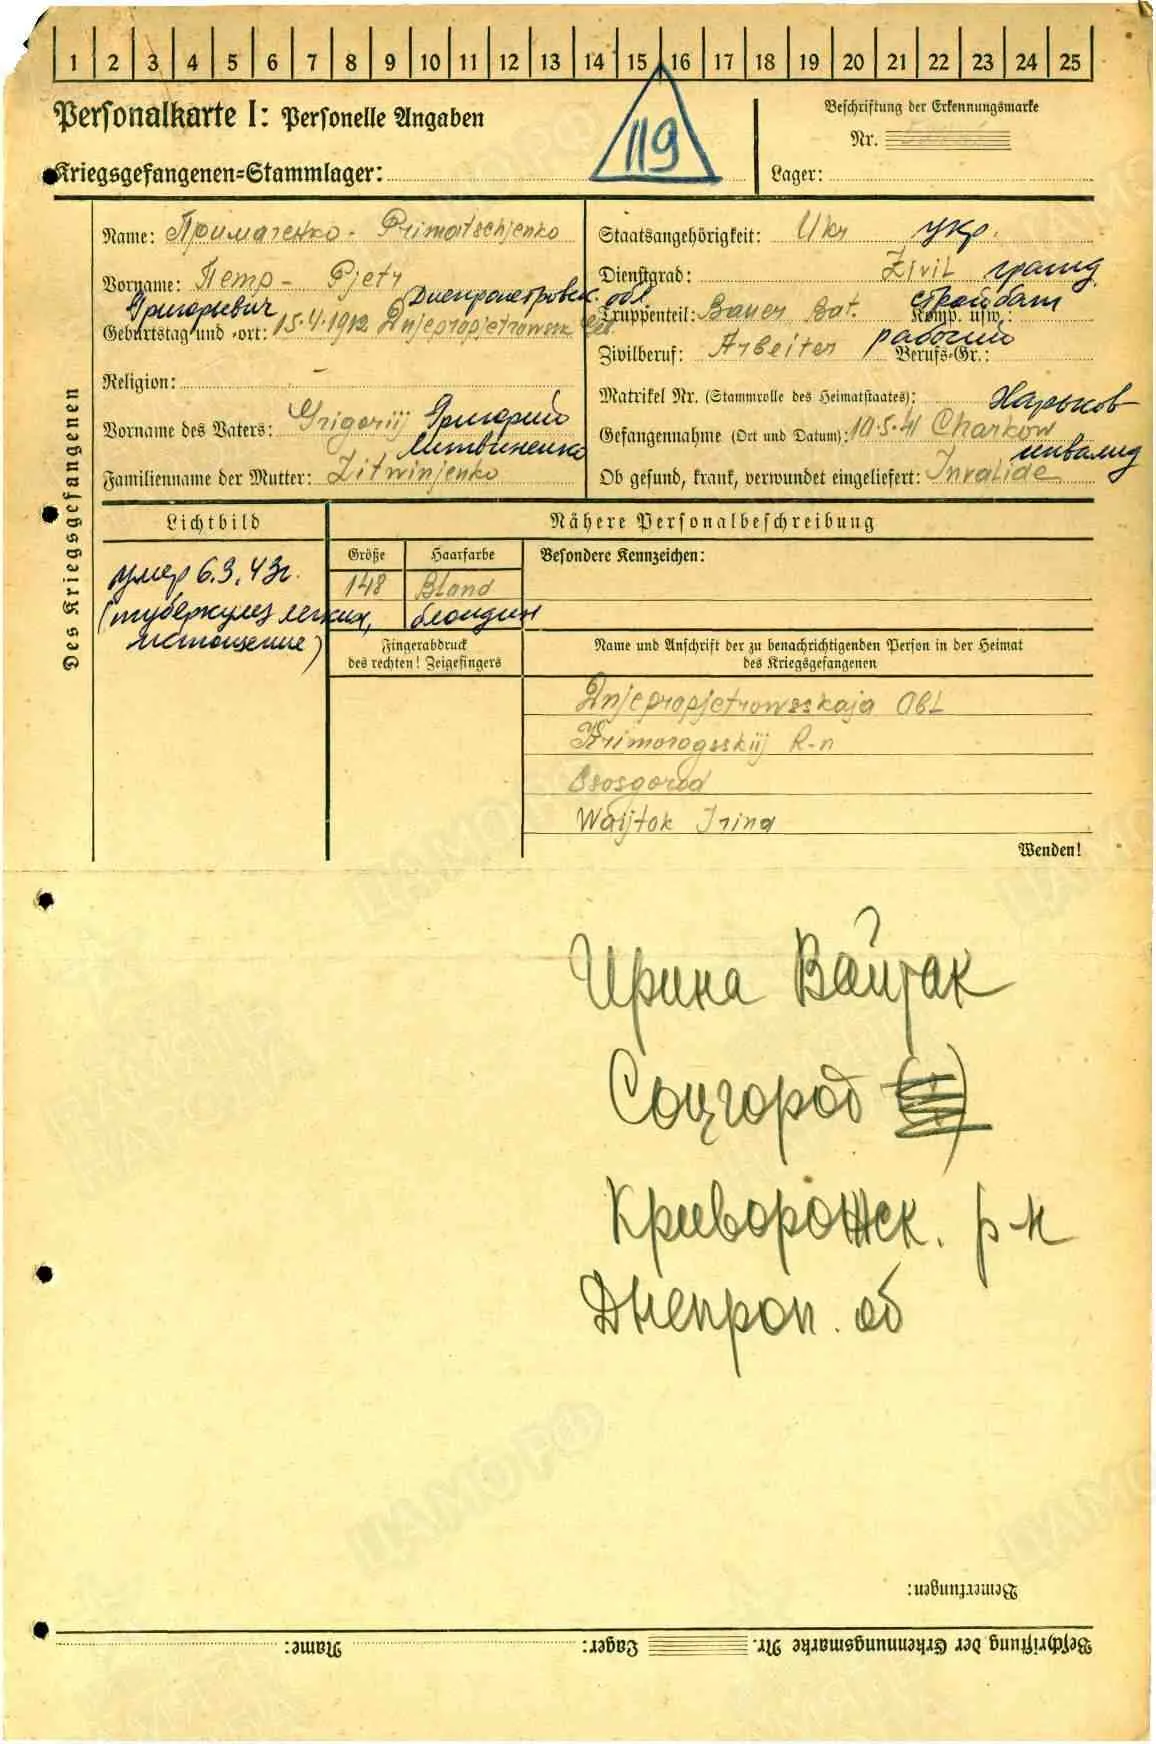 1 2 3 4 5 6 7 8 9 10 11 12 13 14 15 16 17 18 19 20 21 22 23 24 25
Personalkarte I: Personelle Angaben
119
Kriegsgefangenen-Stammlager:
Beschriftung der Erkennungsmarke
Nr.
Lager:
Des Kriegsgefangenen
Name: Примаченко - Primatschjenko
Vorname: Петр - Pjetr
Григорьевич Днепропетровск. обл.
Geburtstag und -ort: 15.4.1912 Dnjepropjetrowsk Geb.
Religion: -
Vorname des Vaters: Grigorij Григорий
Литвиненко
Familienname der Mutter: Litwinjenko
Staatsangehörigkeit: Ukr укр.
Dienstgrad: Zivil гражд
Truppenteil: Bauer Bat. Komp. usw.: стройбат
Zivilberuf: Arbeiter Berufs-Gr.: рабочий
Matrikel Nr. (Stammrolle des Heimatstaates):
Харьков
Gefangennahme (Ort und Datum): 10.5.41 Charkow
инвалид
Ob gesund, krank, verwundet eingeliefert: Invalide
Lichtbild
умер 6.3.43г.
(туберкулез легких,
истощение)
Nähere Personalbeschreibung
Größe Haarfarbe Besondere Kennzeichen:
148 Bland
блондин
Fingerabdruck
des rechten! Zeigefingers
Name und Anschrift der zu benachrichtigenden Person in der Heimat
des Kriegsgefangenen
Dnjepropjetrowsskaja Obl
Krimorogsskij R-n
Sosgorod
Waijtok Irina
Wenden!
Ирина Вайтак
Соцгород
Криворожск. р-н
Днепроп. об
Bemerkungen:
Beschriftung der Erkennungsmarke Nr. Lager: Name:
ЦАМО РФ
ПАМЯТЬ
НАРОДА